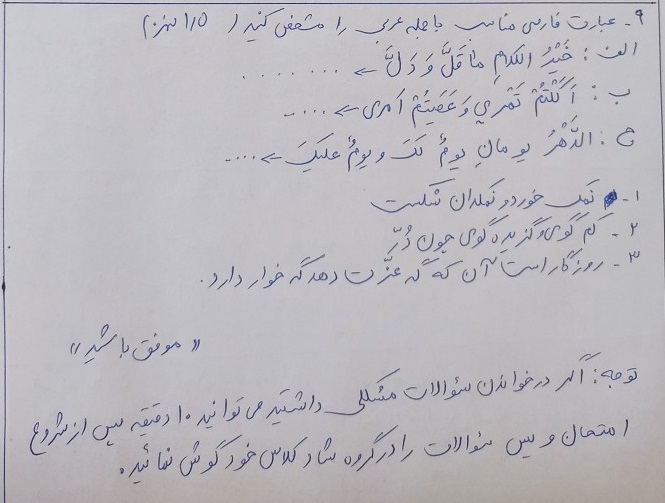 ۹- عبارت فارسی مناسب با جمله عربی را مشخص کنید ( ۱/۵ نمره)
الف : خَیْرُ الکلامِ مٰا قَلَّ وَ دَلَّ ← ........
ب : اَکَلْتُمْ تَمْری وَ عَصَیْتُمْ اَمری ← .....
ج : الدَّهْرُ یومانِ یومٌ لَکَ و یومٌ علیکَ ← .....
۱- نمک خورد و نمکدان شکست
۲- کم گوی و گزیده گوی چون دُرّ
۳- روزگار است آن که گه عزّت دهد گه خوار دارد.
« موفق باشید »
توجه: اگر در خواندن سؤالات مشکلی داشتید می توانید ۱۰ دقیقه پس از شروع
امتحان ویس سؤالات را در گروه شاد کلاس خود گوش نمائید.